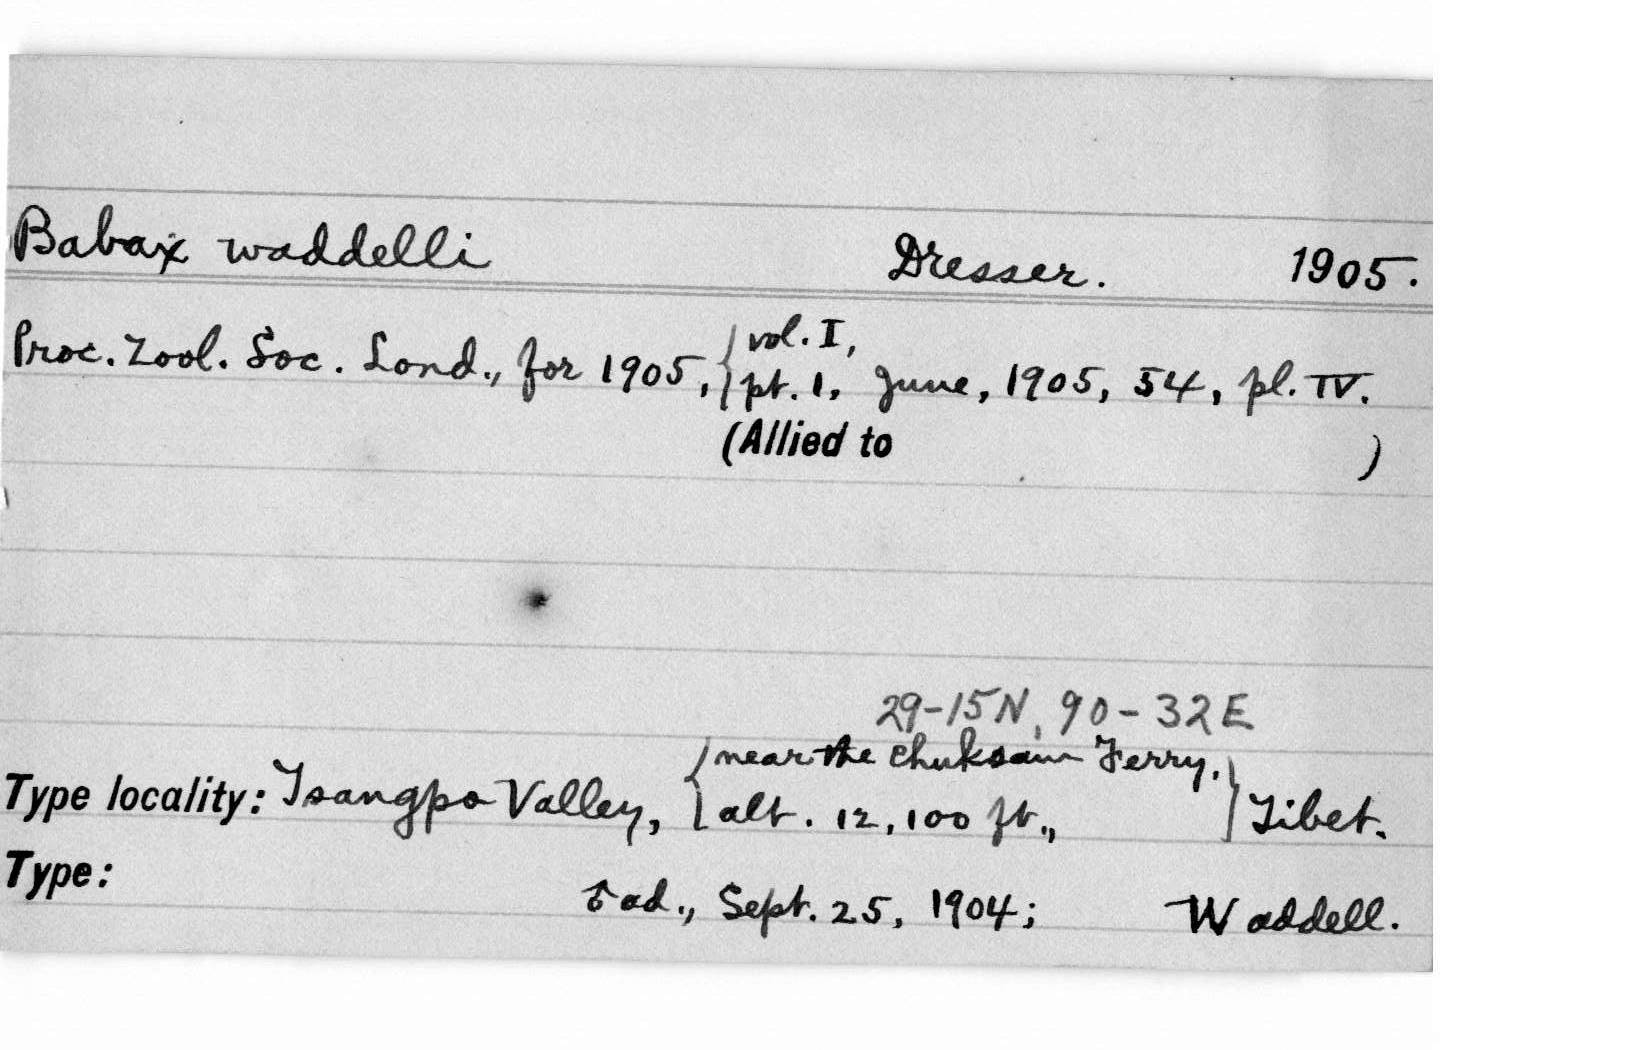 Babax waddelli Dresser. 1905.
Proc. Zool. Soc. Lond., for 1905, { vol. I,
pt. 1, June, 1905, 54, pl. IV.
(Allied to )
29-15N, 90-32E
{ near the Chuksam Ferry, }
Type locality: Tsangpo Valley, alt. 12,100 ft., Tibet.
Type:
♂ ad., Sept. 25, 1904; Waddell.